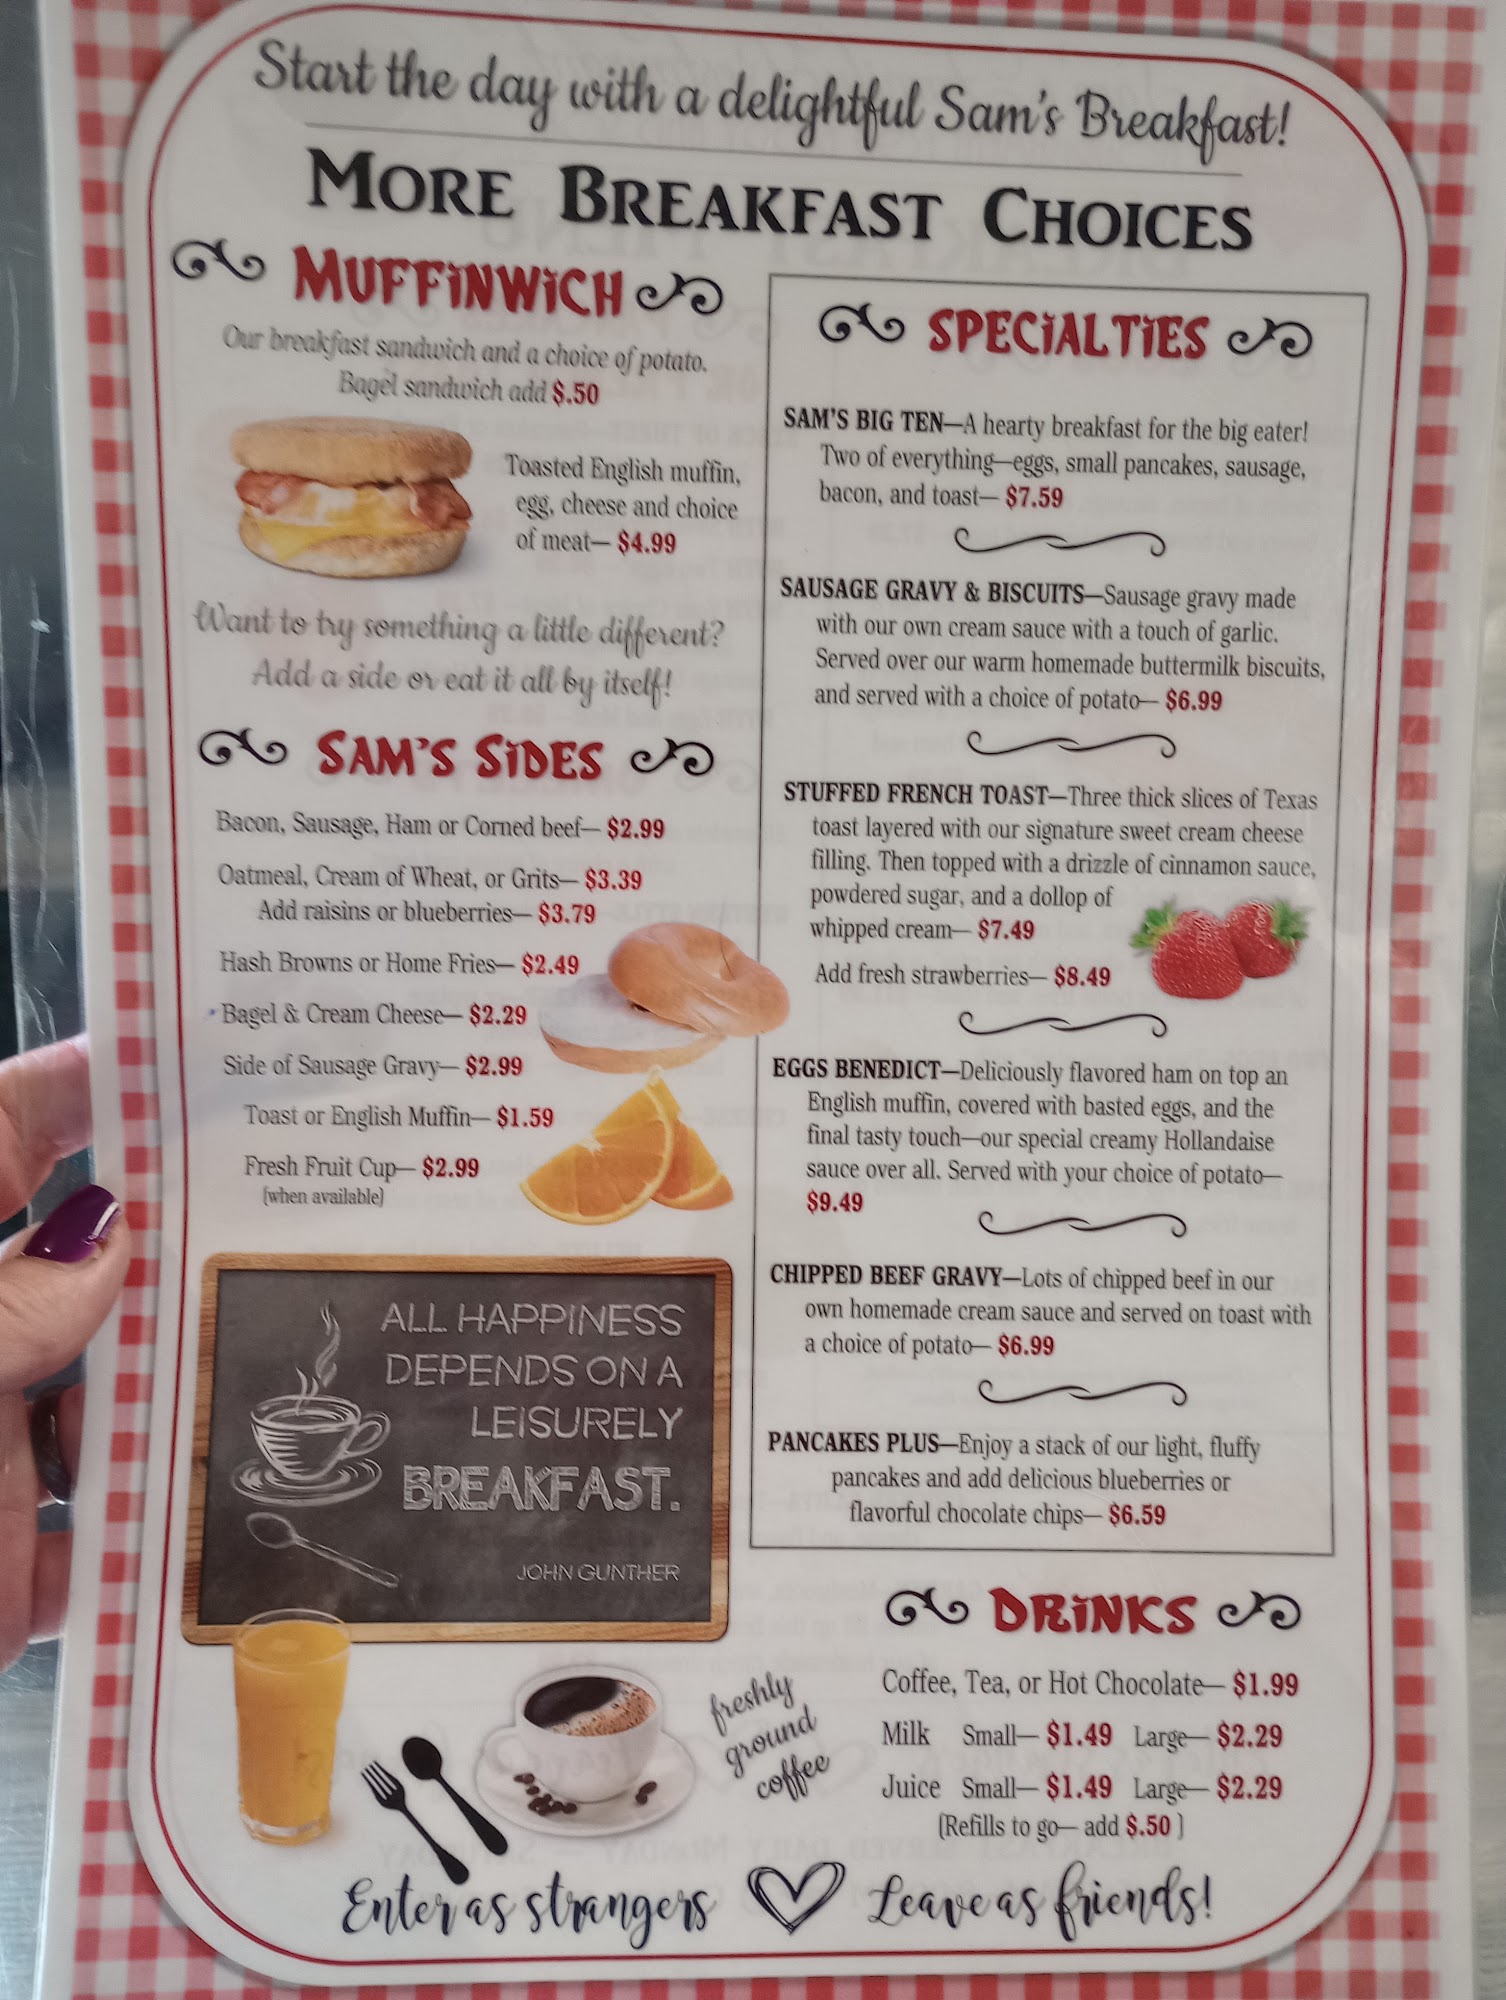 Start the day with a delightful Sam's Breakfast!
MORE BREAKFAST CHOICES
MUFFINWICH
Our breakfast sandwich and a choice of potato.
Bagel sandwich add $.50
Toasted English muffin,
egg, cheese and choice
of meat— $4.99
Want to try something a little different?
Add a side or eat it all by itself!
SAM'S SIDES
Bacon, Sausage, Ham or Corned beef— $2.99
Oatmeal, Cream of Wheat, or Grits— $3.39
Add raisins or blueberries— $3.79
Hash Browns or Home Fries— $2.49
Bagel & Cream Cheese— $2.29
Side of Sausage Gravy— $2.99
Toast or English Muffin— $1.59
Fresh Fruit Cup— $2.99
(when available)
ALL HAPPINESS
DEPENDS ON A
LEISURELY
BREAKFAST.
JOHN GUNTHER
freshly
ground
coffee
SPECIALTIES
SAM'S BIG TEN—A hearty breakfast for the big eater!
Two of everything—eggs, small pancakes, sausage,
bacon, and toast— $7.59
SAUSAGE GRAVY & BISCUITS—Sausage gravy made
with our own cream sauce with a touch of garlic.
Served over our warm homemade buttermilk biscuits,
and served with a choice of potato— $6.99
STUFFED FRENCH TOAST—Three thick slices of Texas
toast layered with our signature sweet cream cheese
filling. Then topped with a drizzle of cinnamon sauce,
powdered sugar, and a dollop of
whipped cream— $7.49
Add fresh strawberries— $8.49
EGGS BENEDICT—Deliciously flavored ham on top an
English muffin, covered with basted eggs, and the
final tasty touch—our special creamy Hollandaise
sauce over all. Served with your choice of potato—
$9.49
CHIPPED BEEF GRAVY—Lots of chipped beef in our
own homemade cream sauce and served on toast with
a choice of potato— $6.99
PANCAKES PLUS—Enjoy a stack of our light, fluffy
pancakes and add delicious blueberries or
flavorful chocolate chips— $6.59
DRINKS
Coffee, Tea, or Hot Chocolate— $1.99
Milk Small— $1.49 Large— $2.29
Juice Small— $1.49 Large— $2.29
(Refills to go— add $.50 )
Enter as strangers Leave as friends!